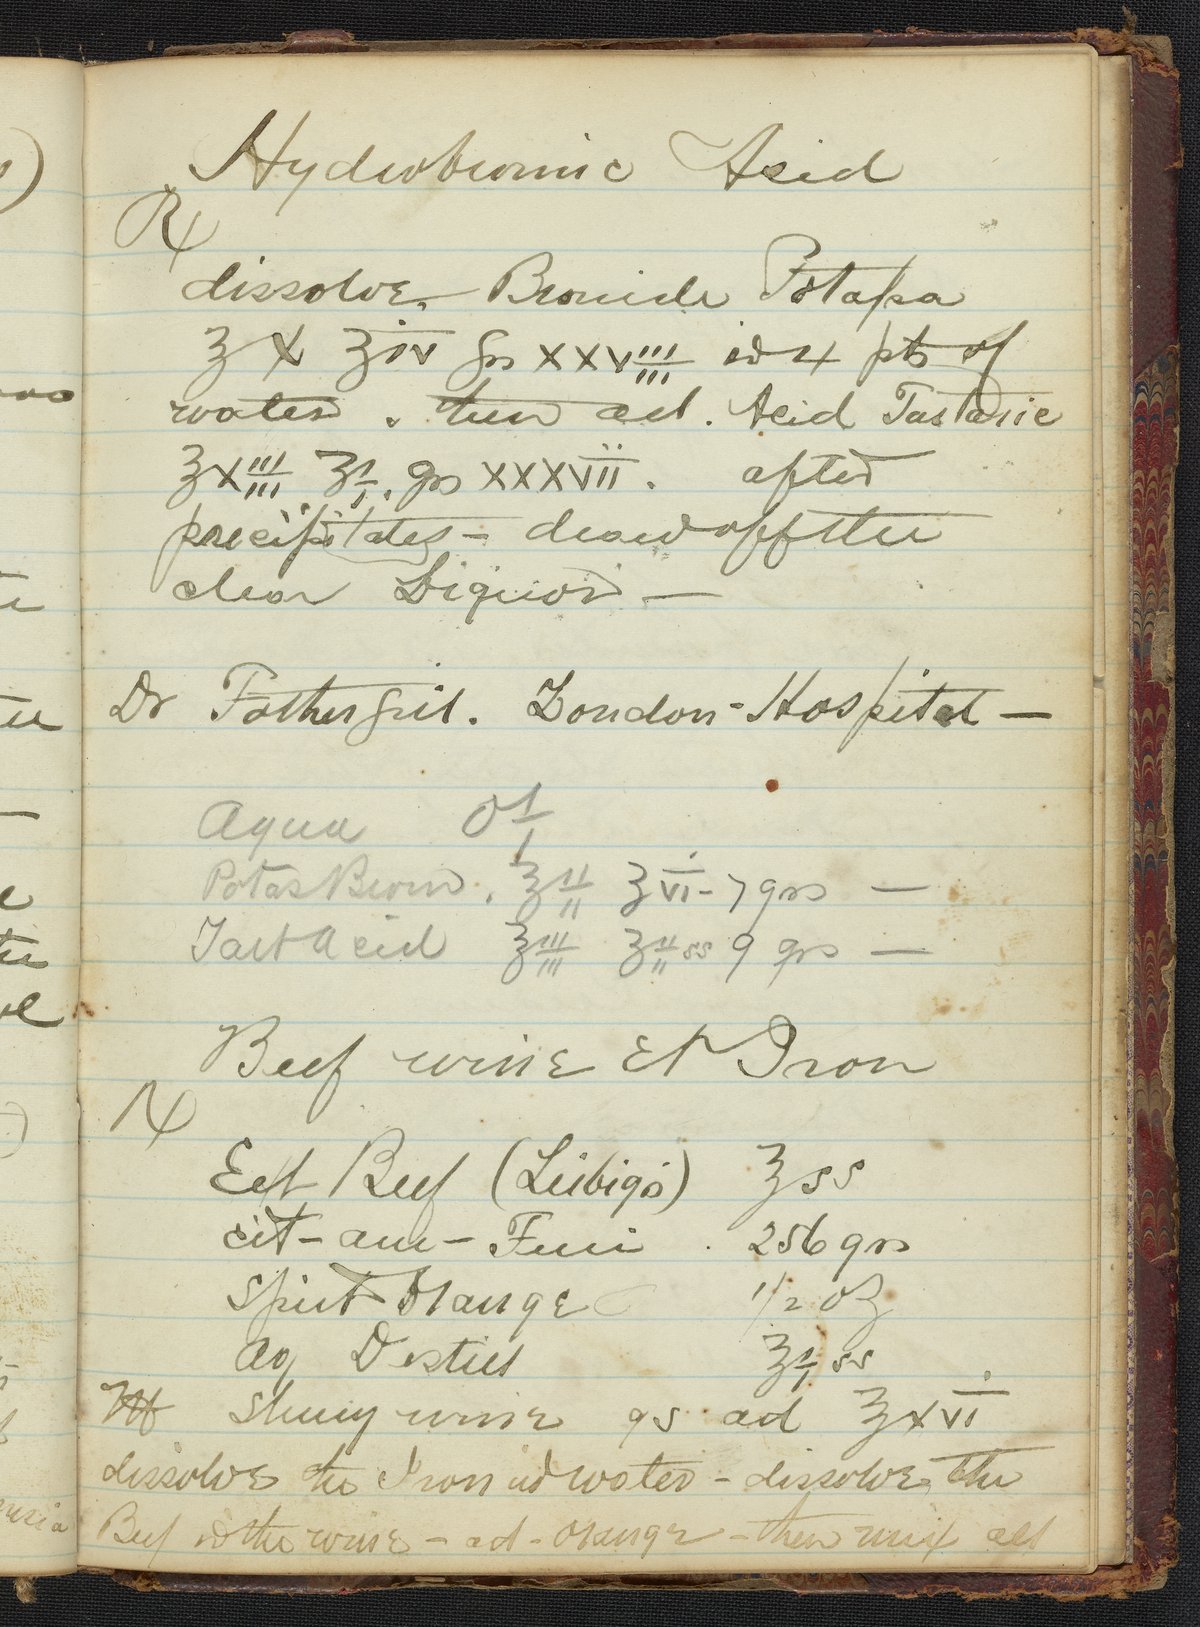 Hydrobromic Acid
℞
dissolve Bromide Potassa
℥ X ʒiv grs xxviii in 4 pts of
water. then ad. Acid Tartaric
℥xiii ʒi. grs xxxvii. after
precipitates - draw off the
clear Liquor -
Dr Fothergil. London-Hospital -
Aqua Oi
Potas Brom. ℥ii ʒvi - 7 grs -
Tart Acid ℥iii ʒiiss 9 grs -
Beef wine et Iron
℞
Ext Beef (Leibigs) ℥ss
cit - am - Ferri . 256 grs
Spirit Orange 1/2 oz
Aq Destill ℥iss
Sherry wine qs ad ℥xvi
dissolve the Iron in water - dissolve the
Beef in the wine - ad - Orange - then mix all